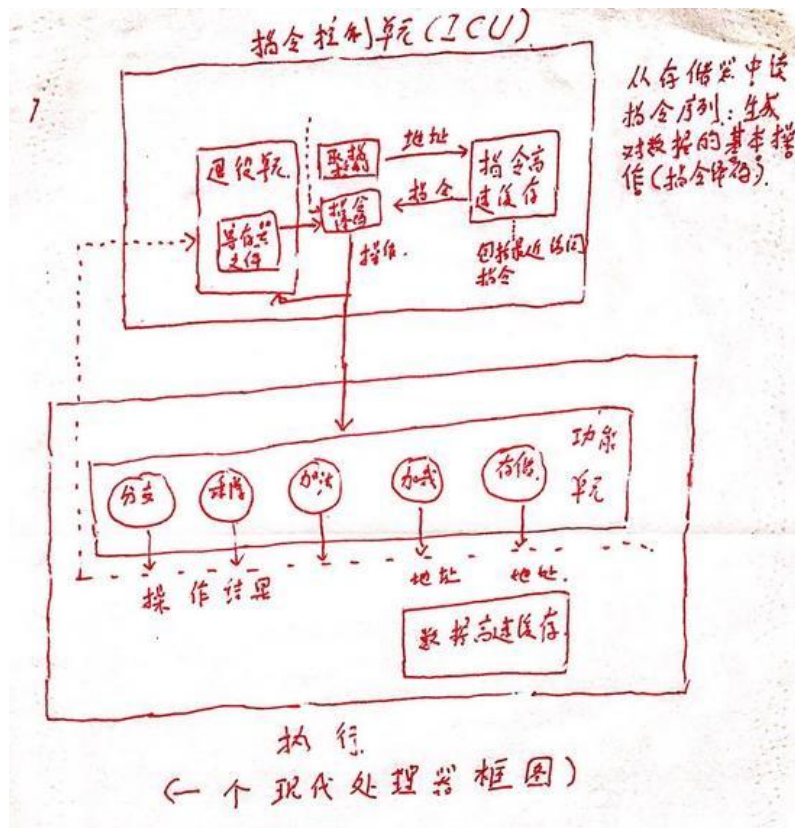 指令控制单元(ICU)
从存储器中读
指令序列：生成
对数据的基本操
作(指令译码).
退役单元
取指
地址
指令高
速缓存
指令
译码
指令
寄存器
文件
操作.
包括最近访问
指令
功能
单元
分支
乘除
加法
加载
存储
操作结果
地址
地址.
数据高速缓存.
执行
(一个现代处理器框图)